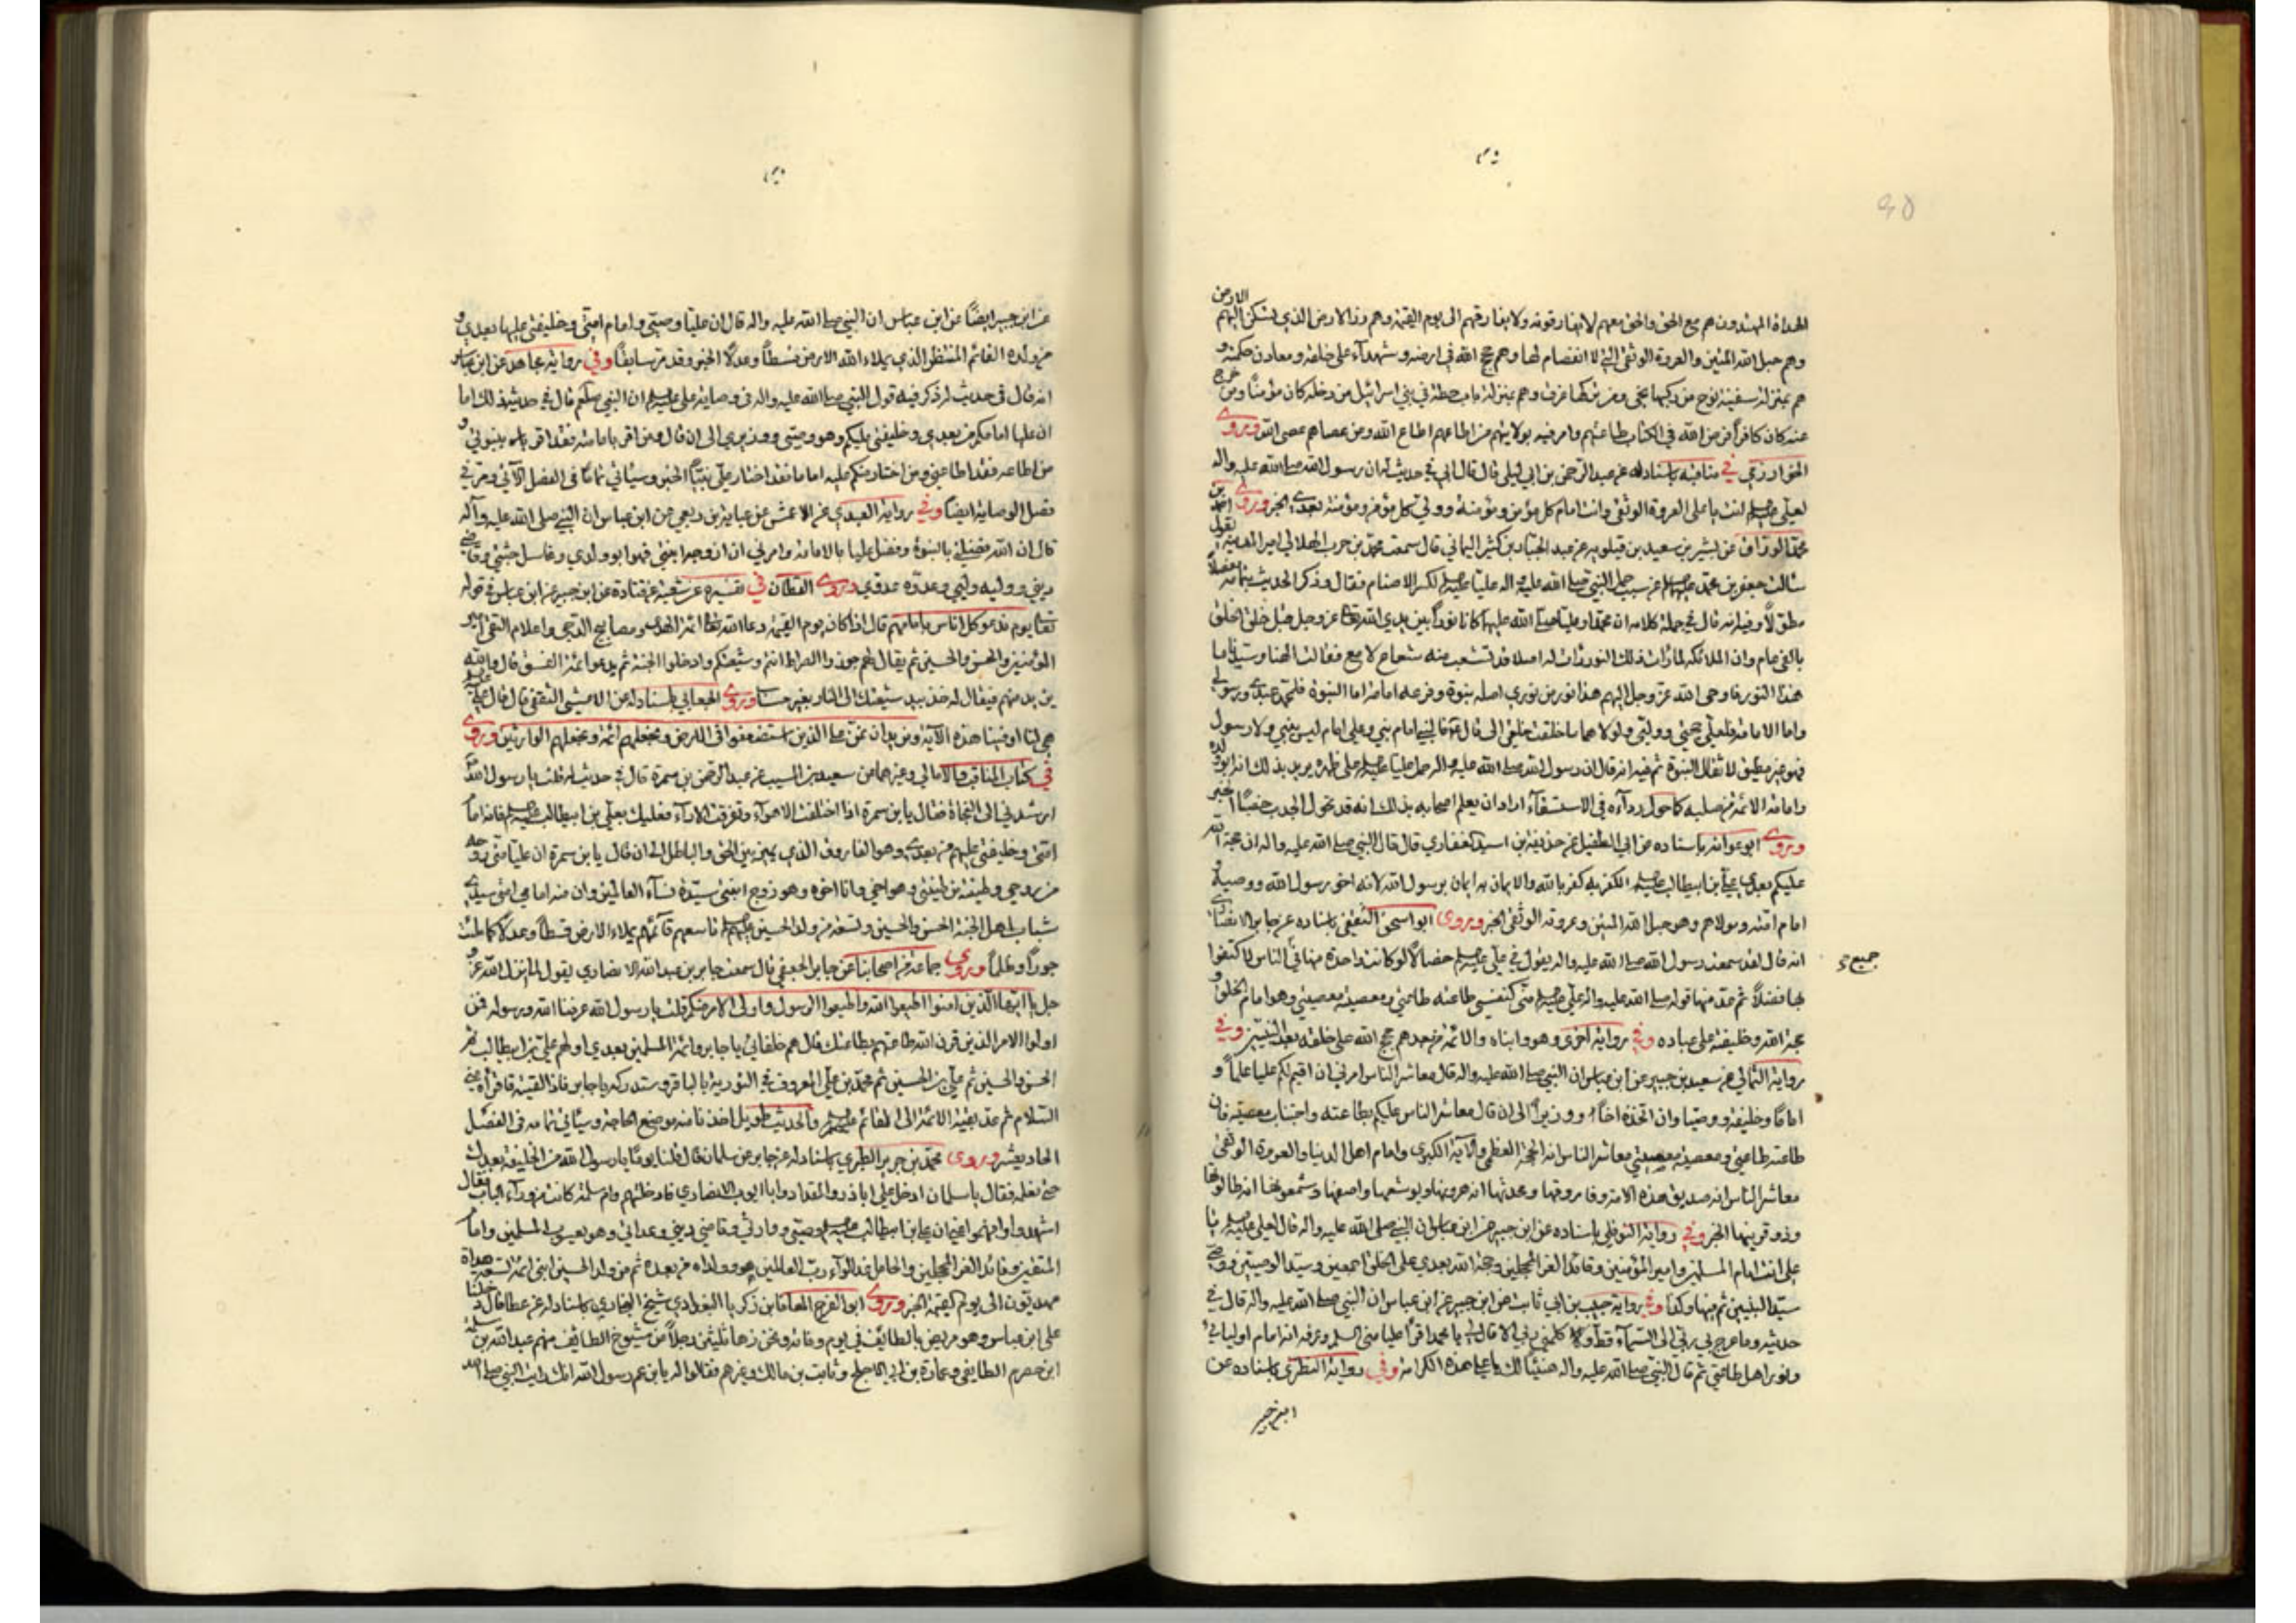 الهداة المهتدون هم مع الحق والحق معهم لا يفارقونه ولا يفارقهم الى يوم القيمة وهم زر الارض الذي تسكن اليهم الارض
وهم حبل الله المتين والعروة الوثقى التي لا انفصام لها وهم حجج الله في ارضه وشهدآء على خلقه ومعادن حكمته و
هم بمنزلة سفينة نوح من ركبها نجى ومن تركها غرق وهم بمنزلة باب حطة في بني اسرائيل من دخله كان مؤمنًا ومن خرج
عنه كان كافرًا فرض الله في الكتاب طاعتهم وامر فيه بولايتهم من اطاعهم اطاع الله ومن عصاهم عصى الله وروى
الخوارزمي في مناقبه باسناده عن عبد الرحمن بن ابي ليلى قال قال ابي في حديث له ان رسول الله صلى الله عليه واله
لعلي انت يا علي العروة الوثقى وانت امام كل مؤمن ومؤمنة وولي كل مؤمن ومؤمنة بعدي الخبر وروى احمد بن
محمد الوراق عن بشير بن سعيد بن قيلويه عن عبد الجبار بن كثير اليماني قال سمعت محمد بن حرب الهلالي امير المدينة يقول
سئالت جعفر بن محمد عن سبب حمل النبي صلى الله عليه واله عليًا لكسر الاصنام فقال وذكر الحديث بتمامه مفصلاً
قال في جملة كلامه ان محمدًا وعليًا صلى الله عليهما كانا نورًا بين يدي الله عز وجل قبل خلق الخلق
بالفي عام وان الملائكة لما رأت ذلك النور رأت له اصلا قد تشعب منه شعاع لامع فقالت الهنا وسيدنا ما
هذا النور فاوحى الله عز وجل اليهم هذا نور من نوري اصله نبوة وفرعه امامة اما النبوة فلمحمد عبدي ورسولي
واما الامامة فلعلي حجتي ووليي ولولاهما ما خلقت خلقي الى قال النبي امام نبي وعلي امام ليس بنبي ولا رسول
فهو غير مطيق لاثقال النبوة ثم فيه انه قال ان رسول الله صلى الله عليه واله حمل عليًا على ظهره يريد بذلك انه ابو ولده
وامامة الائمة من صلبه كما حول ردآءه في الاستسقآء اراد ان يعلم اصحابه بذلك انه قد تحول الجدب خصبًا الخبر
وروى ابو عوانة باسناده عن ابي الطفيل عن حذيفة بن اسيد الغفاري قال قال النبي صلى الله عليه واله ان حجة الله
عليكم بعدي علي بن ابيطالب الكفر به كفر بالله والايمان به ايمان برسول الله لانه اخو رسول الله ووصيه و
امام امته ومولاهم وهو حبل الله المتين وعروته الوثقى الخبر وروى ابو اسحق الثقفي باسناده عن جابر الانصاري
انه قال لقد سمعت رسول الله صلى الله عليه واله يقول في علي خصالاً لو كانت واحدة منها في الناس لاكتفوا
جميع
بها فضلاً ثم عد منها قوله صلى الله عليه واله علي مني كنفسي طاعته طاعتي ومعصيته معصيتي وهو امام الخلق و
حجة الله وخليفته على عباده وفي رواية اخرى وهو وابناه والائمة من بعدهم حجج الله على خلقه بعد النبيين وفي
رواية الثمالي عن سعيد بن جبير عن ابن عباس ان النبي صلى الله عليه واله قال معاشر الناس امرني ان اقيم لكم عليًا علمًا و
امامًا وخليفة ووصيا وان اتخذه اخًا ووزيرًا الى ان قال معاشر الناس عليكم بطاعته واجتناب معصيته فان
طاعته طاعتي ومعصيته معصيتي معاشر الناس انه الحجة العظمى والاية الكبرى وامام اهل الدنيا والعروة الوثقى
معاشر الناس انه صديق هذه الامة وفاروقها ومحدثها انه هرونها ويوشعها واصفها وشمعونها انه طالوتها
وذو قرنيها الخبر وفي رواية النوفلي باسناده عن ابن جبير عن ابن عباس ان النبي صلى الله عليه واله قال لعلي يا
علي انت امام المسلمين وامير المؤمنين وقائد الغر المحجلين وحجة الله بعدي على الخلق اجمعين وسيد الوصيين ووصي
سيد النبيين وفي رواية حبيب بن ابي ثابت عن ابن جبير عن ابن عباس ان النبي صلى الله عليه واله قال في
حديثه وما عرج بي ربي الى السمآء قط وكلمني ربي الا قال لي يا محمد اقرأ عليا مني السلام وعرفه انه امام اوليائي
ونور اهل طاعتي ثم قال النبي صلى الله عليه واله هنيئًا لك يا علي هذه الكرامة وفي رواية النطنزي باسناده عن
ابن جبير
عن ابن جبير ايضًا عن ابن عباس ان النبي صلى الله عليه واله قال ان عليًا وصيي وامام امتي وخليفتي عليها بعدي و
من ولده القائم المنتظر الذي يملاء الله الارض قسطًا وعدلاً الخبر وقد مر سابقًا وفي رواية مجاهد عن ابن عباس
انه قال في حديث له ذكر فيه قول النبي صلى الله عليه واله في وصاية علي ان النبي صلعم قال في حديثه ذلك اما
ان عليا امامكم من بعدي وخليفتي عليكم وهو وصيي ووزيري الى ان قال ومن اقر بامامته فقد اقر بنبوتي و
من اطاعه فقد اطاعني ومن اختار منكم عليه اماما فقد اختار على نبيًّا الخبر وسيأتي تمامًا في الفصل الآتي ومر في
فصل الوصاية ايضًا وفي رواية العبدي عن الاعمش عن عباية بن ربعي عن ابن عباس ان النبي صلى الله عليه وآله
قال ان الله فضلني بالنبوة وفضل عليا بالامامة وامرني ان ازوجه ابنتي فهو ابو ولدي وغاسل جثتي وقاضي
ديني ووليه وليي وعدوه عدوي وروى القطان في تفسيره عن شعبة عن قتادة عن ابن جبير عن ابن عباس في قوله
تعا يوم ندعو كل اناس بامامهم قال اذا كان يوم القيمة دعا الله تعا ائمة الهدى ومصابيح الدجى واعلام التقى امير
المؤمنين والحسن والحسين ثم يقال لهم جوزوا الصراط انتم وشيعتكم وادخلوا الجنة ثم يدعو ائمة الفسق قال والله
يزيد منهم فيقال له خذ بيد شيعتك الى النار بغير حساب وروى الجعابي باسناده عن الاعشى الثقفي قال قال علي
هي لنا او فينا هذه الآية ونريد ان نمن على الذين استضعفوا في الارض ونجعلهم ائمة ونجعلهم الوارثين وروى
في كتاب المناقب والامالي وغيرهما عن سعيد بن المسيب عن عبد الرحمن بن سمرة قال في حديث له قلت يا رسول الله
ارشدني الى النجاة فقال يا بن سمرة اذا اختلفت الاهوآء وتفرقت الارآء فعليك بعلي بن ابيطالب فانه امام
امتي وخليفتي عليهم من بعدي وهو الفاروق الذي يميز بين الحق والباطل الى ان قال يا بن سمرة ان عليًا مني روحه
من روحي وطينته من طينتي وهو اخي وانا اخوه وهو زوج ابنتي سيدة نسآء العالمين وان منه امامي امتي سيدي
شباب اهل الجنة الحسن والحسين وتسعة من ولد الحسين تاسعهم قآئمهم يملاء الارض قسطًا وعدلاً كما ملئت
جورًا وظلمًا وروى جماعة من اصحابنا عن جابر الجعفي قال سمعت جابر بن عبد الله الانصاري يقول لما انزل الله عز و
جل يا ايها الذين امنوا اطيعوا الله واطيعوا الرسول واولي الامر منكم قلت يا رسول الله عرفنا الله ورسوله فمن
اولوا الامر الذين قرن الله طاعتهم بطاعتك فقال هم خلفائي يا جابر وائمة المسلمين بعدي اولهم علي بن ابيطالب ثم
الحسن والحسين ثم علي بن الحسين ثم محمد بن علي المعروف في التورية بالباقر وستدركه يا جابر فاذا لقيته فاقرأه مني
السلام ثم عد بقية الائمة الى القائم والحديث طويل اخذنا منه موضع الحاجة وسيأتي تمامه في الفصل
الحاديعشر وروى محمد بن جرير الطبري باسناده عن جابر عن سلمان قال قلنا يومًا يا رسول الله من الخليفة بعدك
حتى نعلمه فقال يا سلمان ادخل علي اباذر والمقداد وابا ايوب الانصاري فادخلتهم وام سلمة كانت من ورآء الباب فقال
اشهدوا وافهموا عني ان علي بن ابيطالب وصيي ووارثي وقاضي ديني وعداتي وهو يعسوب المسلمين وامام
المتقين وقائد الغر المحجلين والحامل غدا لوآء رب العالمين هو وولداه من بعده ثم من ولد الحسين ابني ائمة تسعة هداة
مهديون الى يوم القيمة الخبر وروى ابو الفرج المعافا بن زكريا البغدادي شيخ البخاري باسناده عن عطا قال دخلنا
على ابن عباس وهو مريض بالطائف في يوم وفاته ونحن زهاء ثلثين رجلاً من شيوخ الطايف منهم عبد الله بن سلمة
ابن حضرم الطايفي وعمارة بن ابي الاجلح وثابت بن مالك وغيرهم فقالوا له يا بن عم رسول الله انك رايت النبي صلى الله